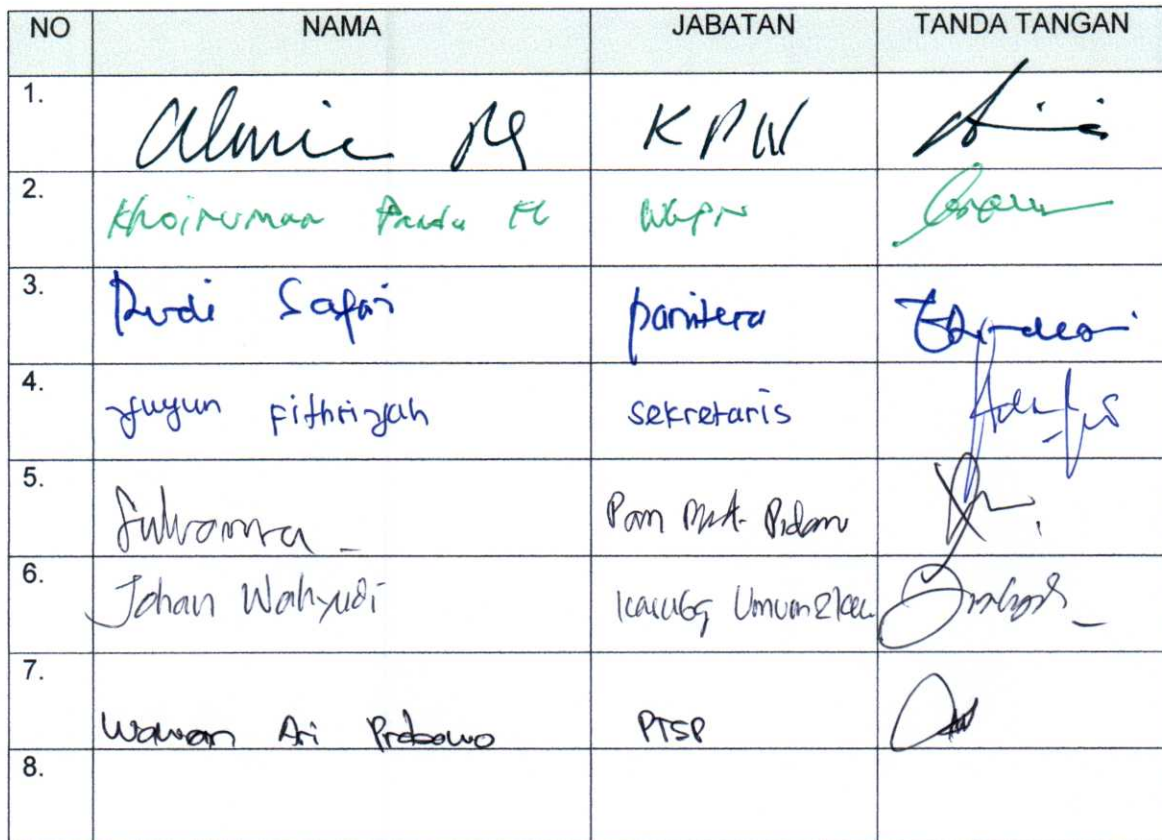 NO NAMA JABATAN TANDA TANGAN
1. KPN
2. Khoiruman Pandu WKPN
3. Rudi Safari panitera
4. Yuyun Fithriyah sekretaris
5. Pan
6. Johan Wahyudi Kasubg Umum
7. Wawan Ari Prabowo PTSP
8.